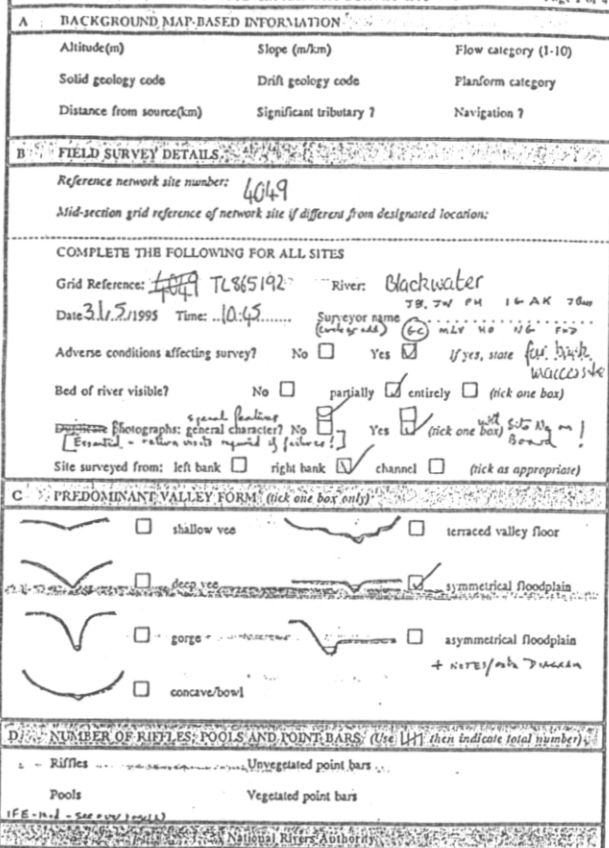 A BACKGROUND MAP-BASED INFORMATION
Altitude(m) Slope (m/km) Flow category (1-10)
Solid geology code Drift geology code Planform category
Distance from source(km) Significant tributary ? Navigation ?
B FIELD SURVEY DETAILS
Reference network site number: 4049
Mid-section grid reference of network site if different from designated location:
COMPLETE THE FOLLOWING FOR ALL SITES
Grid Reference: 4049 TL865192 River: Blackwater
JB, JW PH IG AK
Date 31/5/1995 Time: 10:45 Surveyor name
GC MLY HO NG
Adverse conditions affecting survey? No Yes If yes, state far bank
Bed of river visible? No partially entirely (tick one box)
special features
Duplicate photographs: general character? No Yes (tick one box) with Site No on
[Essential - return visits required if failures!] Board!
Site surveyed from: left bank right bank channel (tick as appropriate)
C PREDOMINANT VALLEY FORM (tick one box only)
shallow vee terraced valley floor
deep vee symmetrical floodplain
gorge asymmetrical floodplain
+ NOTES/ DIAGRAM
concave/bowl
D NUMBER OF RIFFLES, POOLS AND POINT BARS (Use then indicate total number)
Riffles Unvegetated point bars
Pools Vegetated point bars
National Rivers Authority